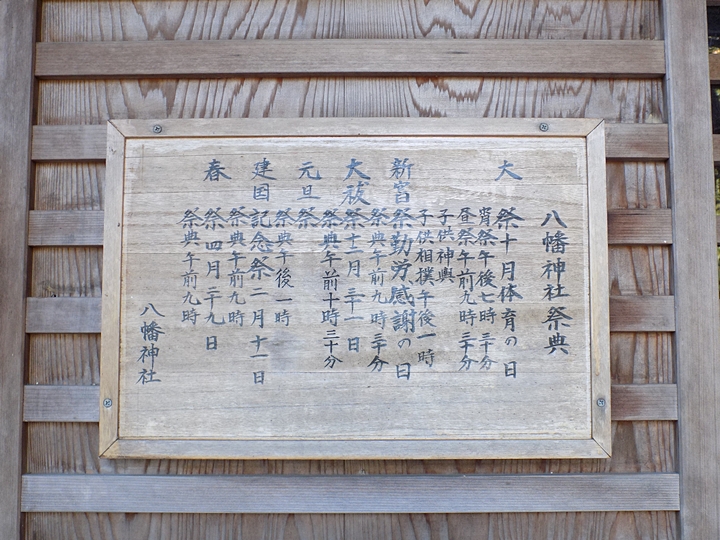 八幡神社祭典
大祭十月体育の日
宵祭午後七時三十分
昼祭午前九時三十分
子供神輿
子供相撲午後一時
新嘗祭勤労感謝の日
祭典午前九時三十分
大祓祭十二月三十一日
祭典午前十時三十分
元旦祭
祭典午後一時
建国記念祭二月十一日
祭典午前九時
春祭四月二十九日
祭典午前九時
八幡神社